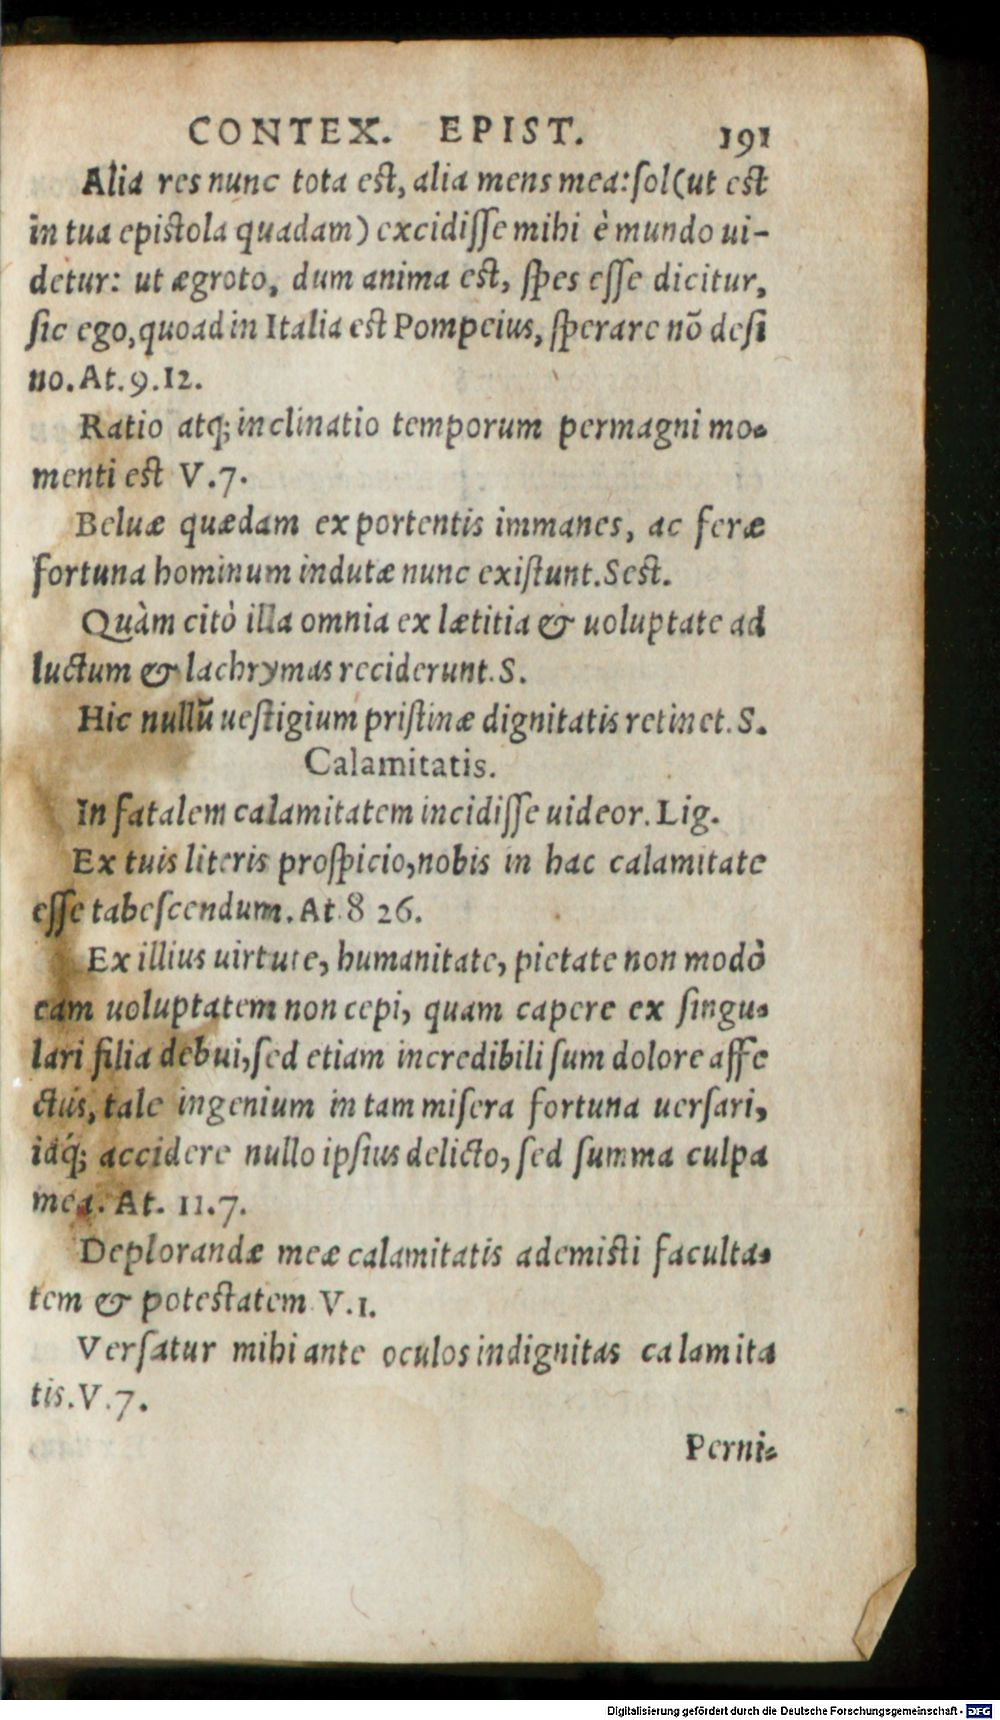 CONTEX. EPIST. 191
Alia res nunc tota est, alia mens mea: sol (ut est
in tua epistola quadam) excidisse mihi è mundo ui-
detur: ut ægroto, dum anima est, spes esse dicitur,
sic ego, quoad in Italia est Pompeius, sperare nō desi
no. At. 9. 12.
Ratio atq; inclinatio temporum permagni mo-
menti est V. 7.
Beluæ quædam ex portentis immanes, ac feræ
fortuna hominum indutæ nunc existunt. Sest.
Quàm citò illa omnia ex lætitia & uoluptate ad
luctum & lachrymas reciderunt. S.
Hic nullū uestigium pristinæ dignitatis retinet. S.
Calamitatis.
In fatalem calamitatem incidisse uideor. Lig.
Ex tuis literis prospicio, nobis in hac calamitate
esse tabescendum. At 8 26.
Ex illius uirtute, humanitate, pietate non modò
eam uoluptatem non cepi, quam capere ex singu-
lari filia debui, sed etiam incredibili sum dolore affe
ctus, tale ingenium in tam misera fortuna uersari,
idq́; accidere nullo ipsius delicto, sed summa culpa
mea. At. 11. 7.
Deplorandæ meæ calamitatis ademisti faculta-
tem & potestatem V. 1.
Versatur mihi ante oculos indignitas calamita
tis. V. 7.
Perni-
Digitalisierung gefördert durch die Deutsche Forschungsgemeinschaft - DFG